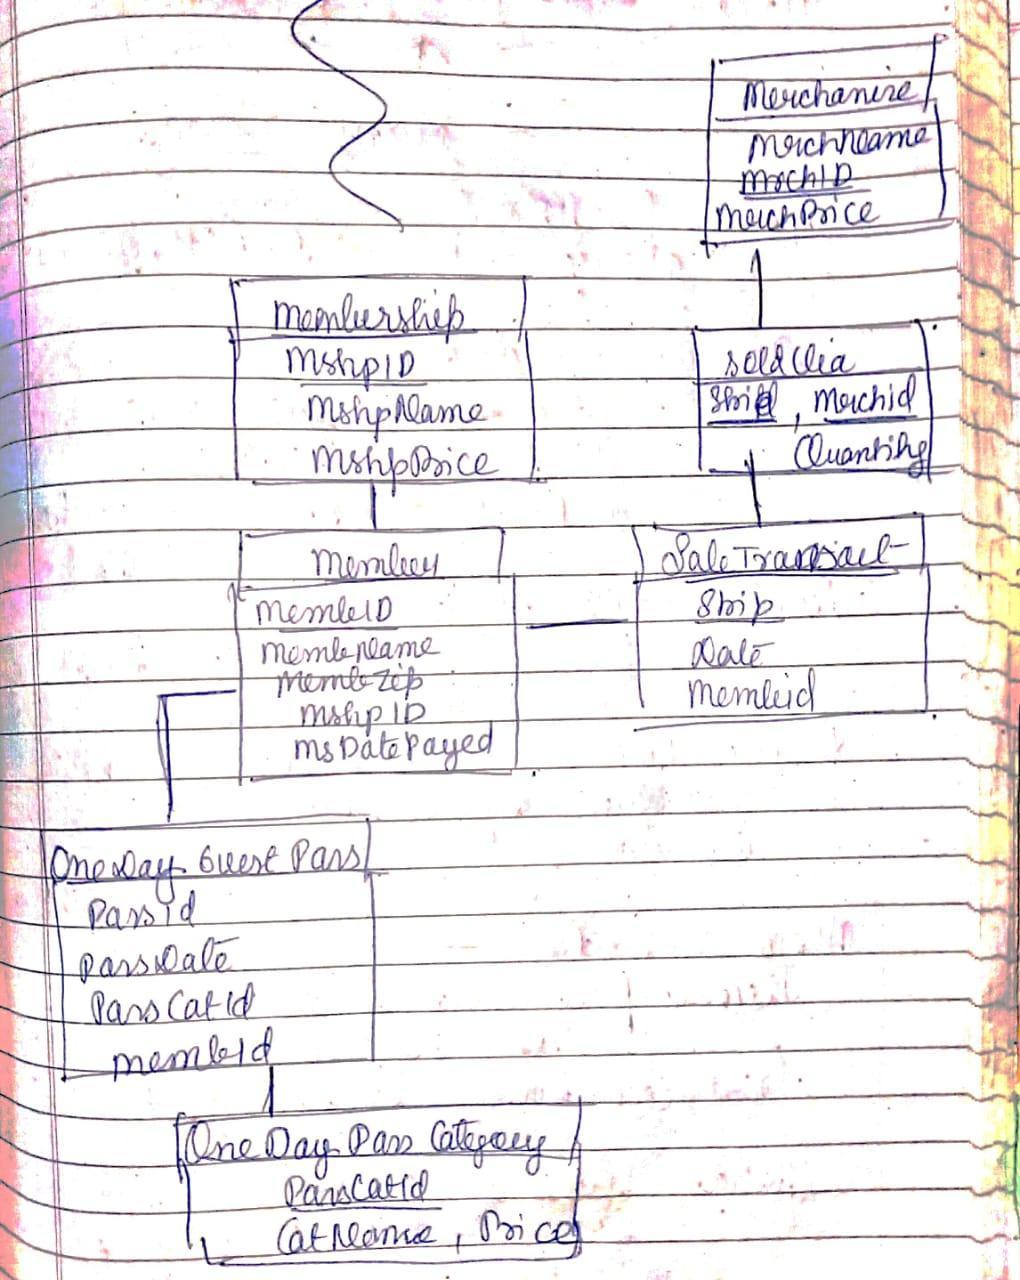 Merchanire
MerchName
MerchID
MerchPrice
Membership
MshpID
MshpName
MshpPrice
Sold Via
, Merchid
Quantity
Member
MembID
MembName
MembZip
MshpID
msDatePayed
Sale Transact
Date
Membid
One Day Guest Pass
PassId
PassDate
PassCatId
membId
One Day Pass Category
PassCatId
CatName , Price